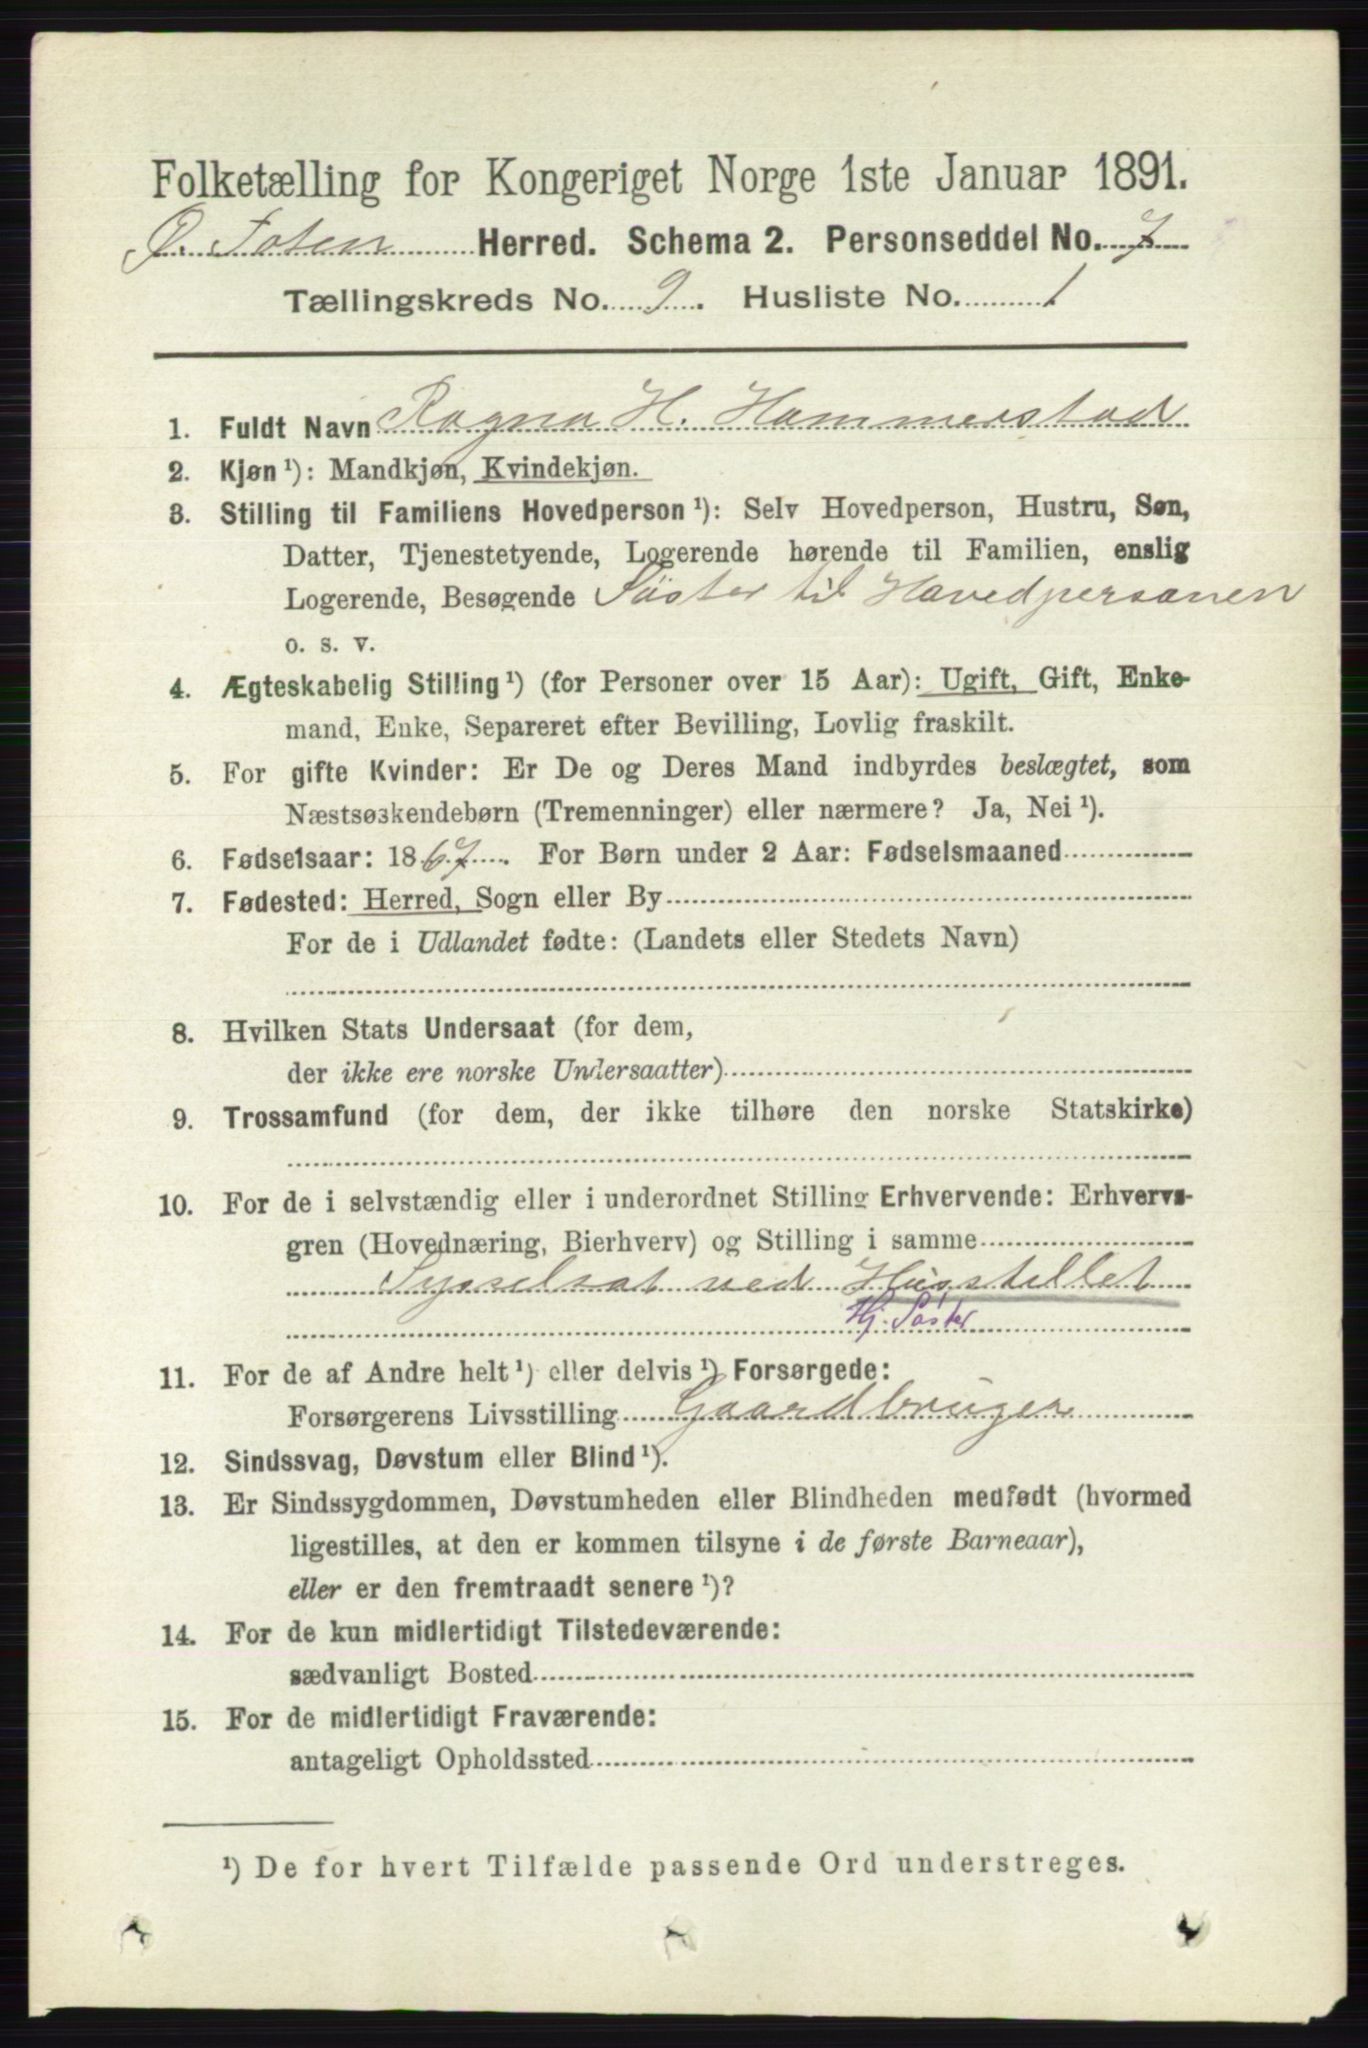 Folketælling for Kongeriget Norge 1ste Januar 1891.
Ø. Toten Herred. Schema 2. Personseddel No. 7
Tællingskreds No. 9. Husliste No. 1
1. Fuldt Navn Ragna H. Hammerstad
2. Kjøn ¹): Mandkjøn, Kvindekjøn.
3. Stilling til Familiens Hovedperson ¹): Selv Hovedperson, Hustru, Søn,
Datter, Tjenestetyende, Logerende hørende til Familien, enslig
Logerende, Besøgende Søster til Hovedpersonen
o. s. v.
4. Ægteskabelig Stilling ¹) (for Personer over 15 Aar): Ugift, Gift, Enke-
mand, Enke, Separeret efter Bevilling, Lovlig fraskilt.
5. For gifte Kvinder: Er De og Deres Mand indbyrdes beslægtet, som
Næstsøskendebørn (Tremenninger) eller nærmere? Ja, Nei ¹).
6. Fødselsaar: 1867. For Børn under 2 Aar: Fødselsmaaned
7. Fødested: Herred, Sogn eller By
For de i Udlandet fødte: (Landets eller Stedets Navn)
8. Hvilken Stats Undersaat (for dem,
der ikke ere norske Undersaatter)
9. Trossamfund (for dem, der ikke tilhøre den norske Statskirke)
10. For de i selvstændig eller i underordnet Stilling Erhvervende: Erhvervs-
gren (Hovednæring, Bierhverv) og Stilling i samme
Sysselsat ved Husstellet
Hj. Søster
11. For de af Andre helt ¹) eller delvis ¹) Forsørgede:
Forsørgerens Livsstilling Gaardbruger
12. Sindssvag, Døvstum eller Blind ¹).
13. Er Sindssygdommen, Døvstumheden eller Blindheden medfødt (hvormed
ligestilles, at den er kommen tilsyne i de første Barneaar),
eller er den fremtraadt senere ¹)?
14. For de kun midlertidigt Tilstedeværende:
sædvanligt Bosted
15. For de midlertidigt Fraværende:
antageligt Opholdssted
¹) De for hvert Tilfælde passende Ord understreges.